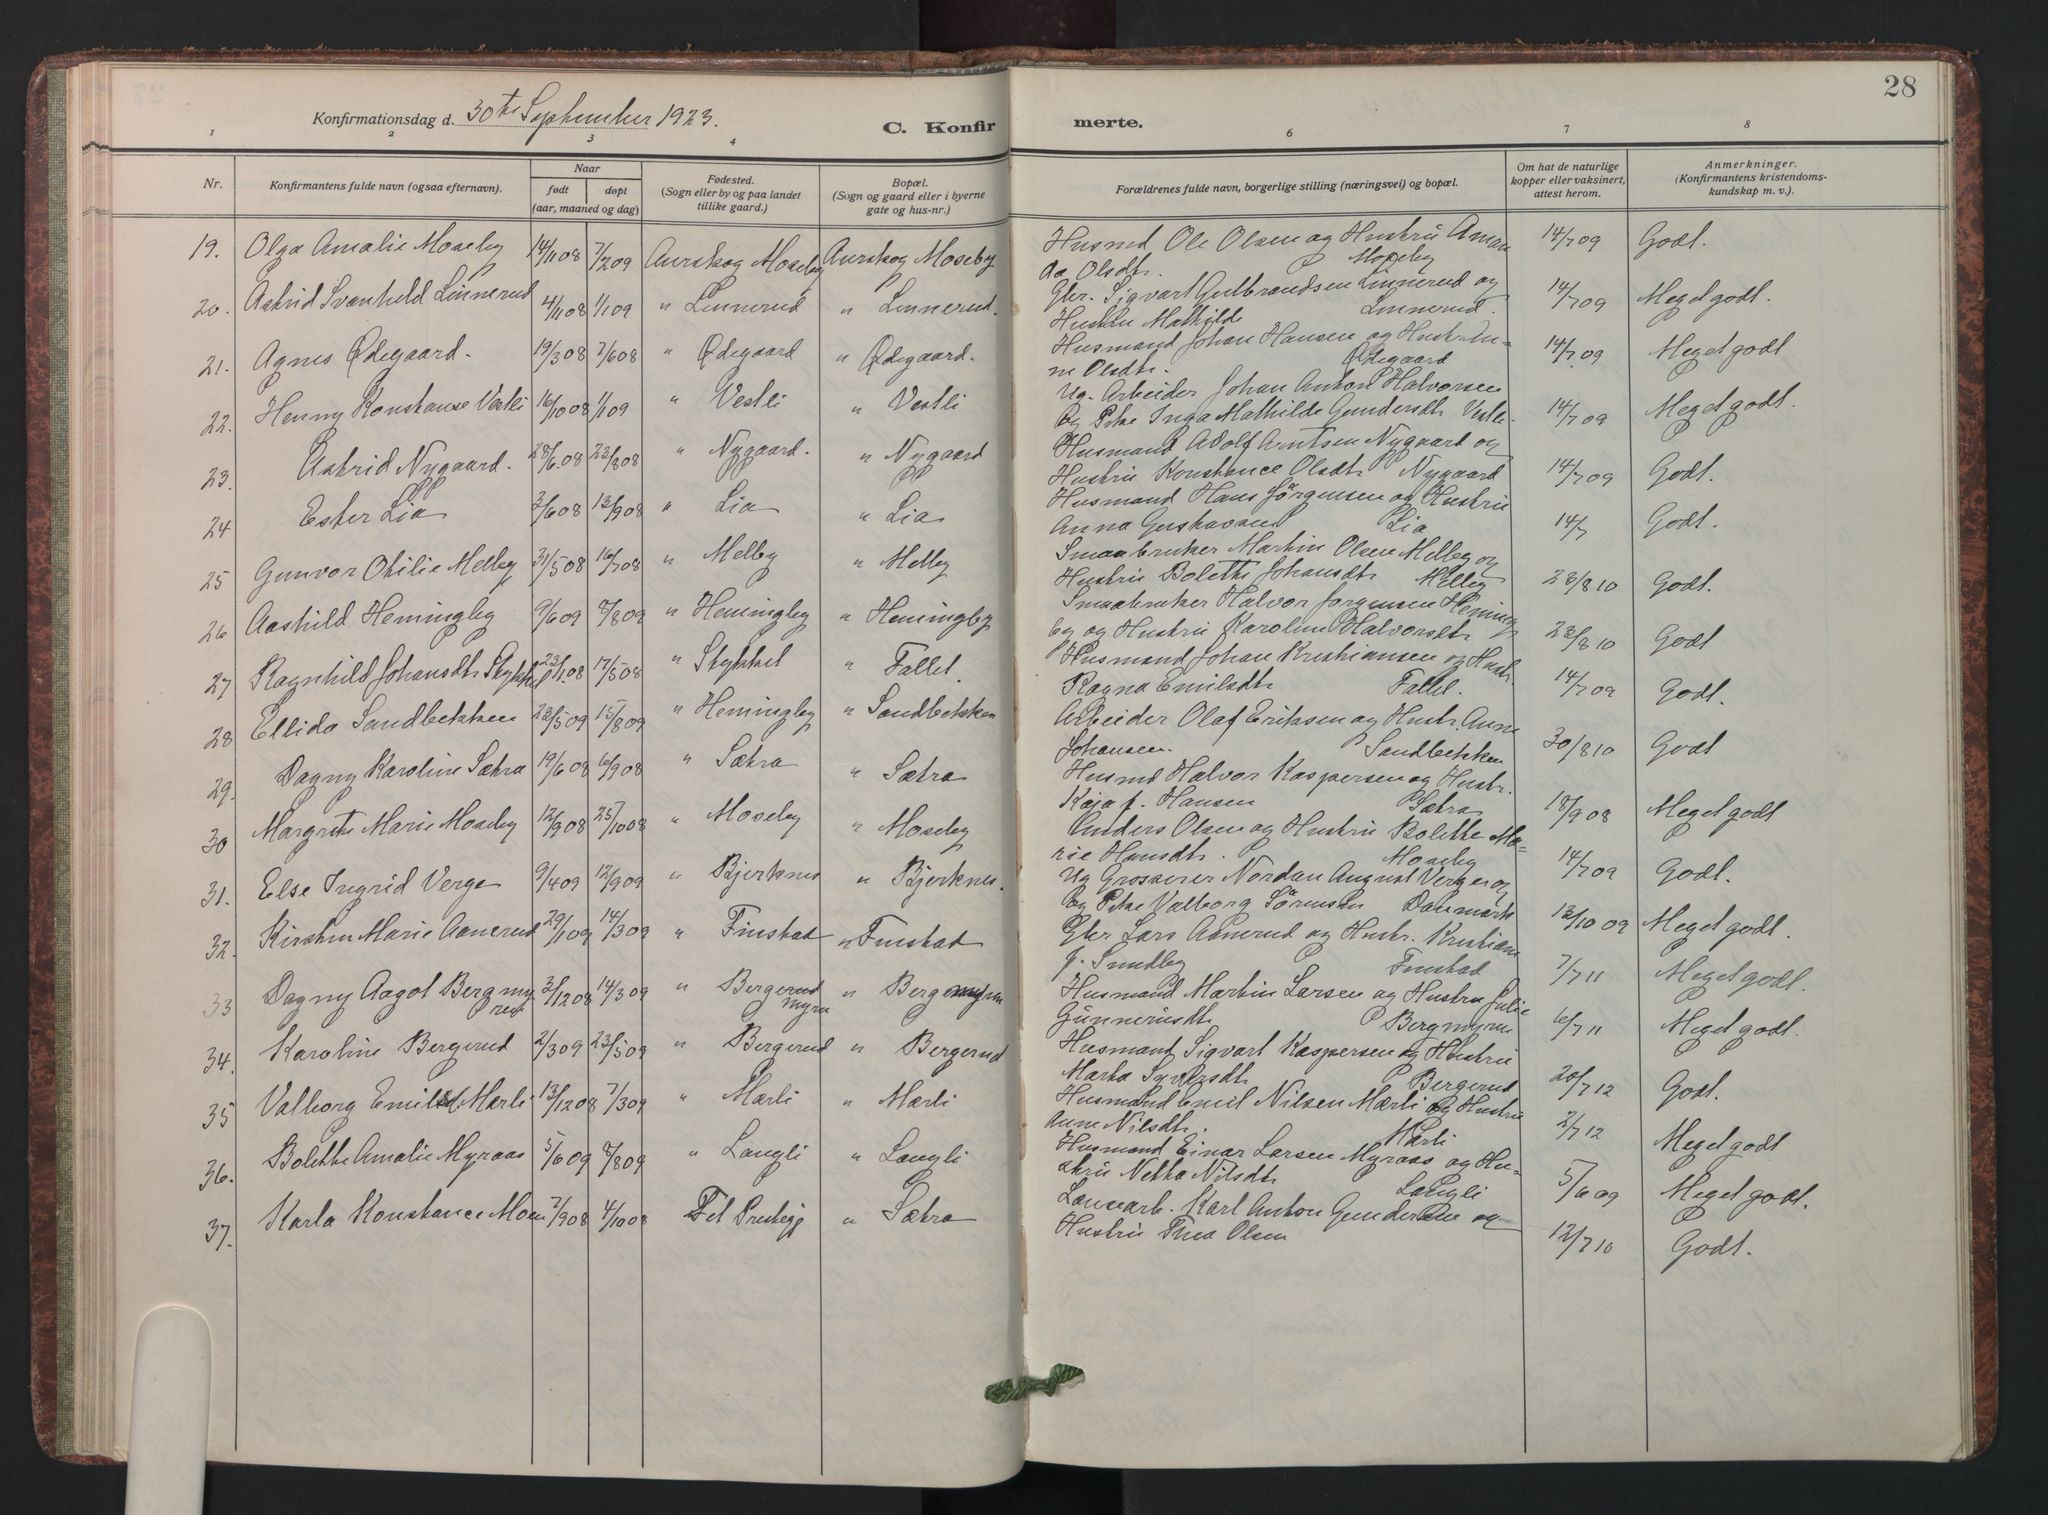 28
Konfirmationsdag d. 30te September 1923.
C. Konfirmerte.
1 2 3 4 6 7 8
Nr. Konfirmantens fulde navn (ogsaa efternavn). Naar født døpt (aar, maaned og dag) Fødested. (Sogn eller by og paa landet tillike gaard.) Bopæl. (Sogn og gaard eller i byerne gate og hus-nr.) Forældrenes fulde navn, borgerlige stilling (næringsvei) og bopæl. Om hat de naturlige kopper eller vaksinert, attest herom. Anmerkninger. (Konfirmantens kristendomskundskap m. v.).
19. Olga Amalie Moseby 14/11 08 7/2 09 Aurskog Moseby Aurskog Moseby Husmd Ole Olsen og Hustru Aman
da Olsdtr. Moseby 14/7 09 Godt.
20. Astrid Svanhild Linnerud 4/11 08 1/1 09 " Linnerud " Linnerud. Gbr. Sigvart Gulbrandsen Linnerud og
Hustru Mathilde Linnerud. 14/7 09 Meget godt.
21. Agnes Ødegaard. 19/3 08 7/6 08 " Ødegaard " Ødegaard. Husmand Johan Hansen og Hustr. An-
ne Olsdtr. Ødegaard 14/7 09 Meget godt
22. Henny Konstanse Vestli 16/10 08 1/1 09 " Vestli " Vestli Ug. Arbeider Johan Anton Halvorsen
og Pike Inga Mathilde Gundersdt. Vestli. 14/7 09 Meget godt.
23. Astrid Nygaard. 28/6 08 23/8 08 " Nygaard. " Nygaard Husmand Adolf Arntsen Nygaard og
Hustru Konstance Olsdtr Nygaard 14/7 09 Godt.
24 Ester Lia 3/6 08 13/9 08 " Lia " Lia Husmand Hans Jørgensen og Hustru
Anna Lia 14/7 Godt.
25 Gunvor Otilie Melby 31/5 08 16/7 08 " Melby " Melby Smaabruker Martin Olsen Melby og
Hustru Bolette Johansdtr Melby 23/8 10 Godt.
26 Aashild Hemingby 9/6 09 8/8 09 " Hemingby " Hemingby Smaabruker Halvor Jørgensen Heming-
by og Hustru Karoline Halvorsdtr 23/8 10 Godt
27 Ragnhild Johansdtr Stykket 23/1 08 17/5 08 " Stykket " Fallet. Husmand Johan Kristiansen og Hustr.
Ragna Emilsdtr Fallet. 14/7 09 Godt.
28 Ellida Sandbekken 23/5 09 15/8 09 " Hemingby " Sandbekken Arbeider Olaf Eriksen og Hustr. Anne
Johansen. Sandbekken 30/8 10 Godt
29. Dagny Karoline Sætra 19/6 08 6/9 08 " Sætra " Sætra Husmd Halvor Kaspersen og Hustr.
Kaja f. Hansen Sætra 18/9 08 Meget godt
30 Margrete Marie Moseby 12/9 08 25/10 08 " Moseby " Moseby Anders Olsen og Hustru Bolette Ma-
rie Hansdtr. Moseby 14/7 09 Godt.
31. Else Ingrid Verge 9/4 09 12/9 09 " Bjerknes " Bjerknes. Ug Grosserer Nordan August Verge og
og Pike Valborg Sörensen Danmark 13/10 09 Meget godt.
32. Kirsten Marie Aanerud 29/1 09 14/3 09 " Finstad " Finstad Gbr Lars Aanerud og Hustr. Kristiane
f. Sundby Finstad 7/7 11 Meget godt.
33 Dagny Aagot Bergmyren 3/12 08 14/3 09 " Bergerud myra " Bergmyra Husmand Martin Larsen og Hustru Julie
Gunneriusdt. Bergmyren 6/7 11 Meget godt.
34. Karoline Bergerud 2/3 09 23/5 09 " Bergerud " Bergerud Husmand Sigvart Kaspersen og Hustru
Marta Syversdtr Bergerud 20/7 12 Godt.
35 Valborg Emilsdt. Mærli 13/12 08 7/3 09 " Mærli " Mærli Husmand Emil Nilsen Mærli og Hustru
Anne Nilsdt. Mærli 2/7 12 Meget godt
36. Bolette Amalie Myraas 5/6 09 8/8 09 " Langli " Langli Husmand Einar Larsen Myraas og Hu-
stru Netta Nilsdt. Langli 5/6 09 Meget godt.
37. Karla Konstance Moen 7/9 08 4/10 08 Fet Prestegj. " Sætra Lausarb. Karl Anton Gundersen og
Hustru Olsen 12/7 10 Godt.